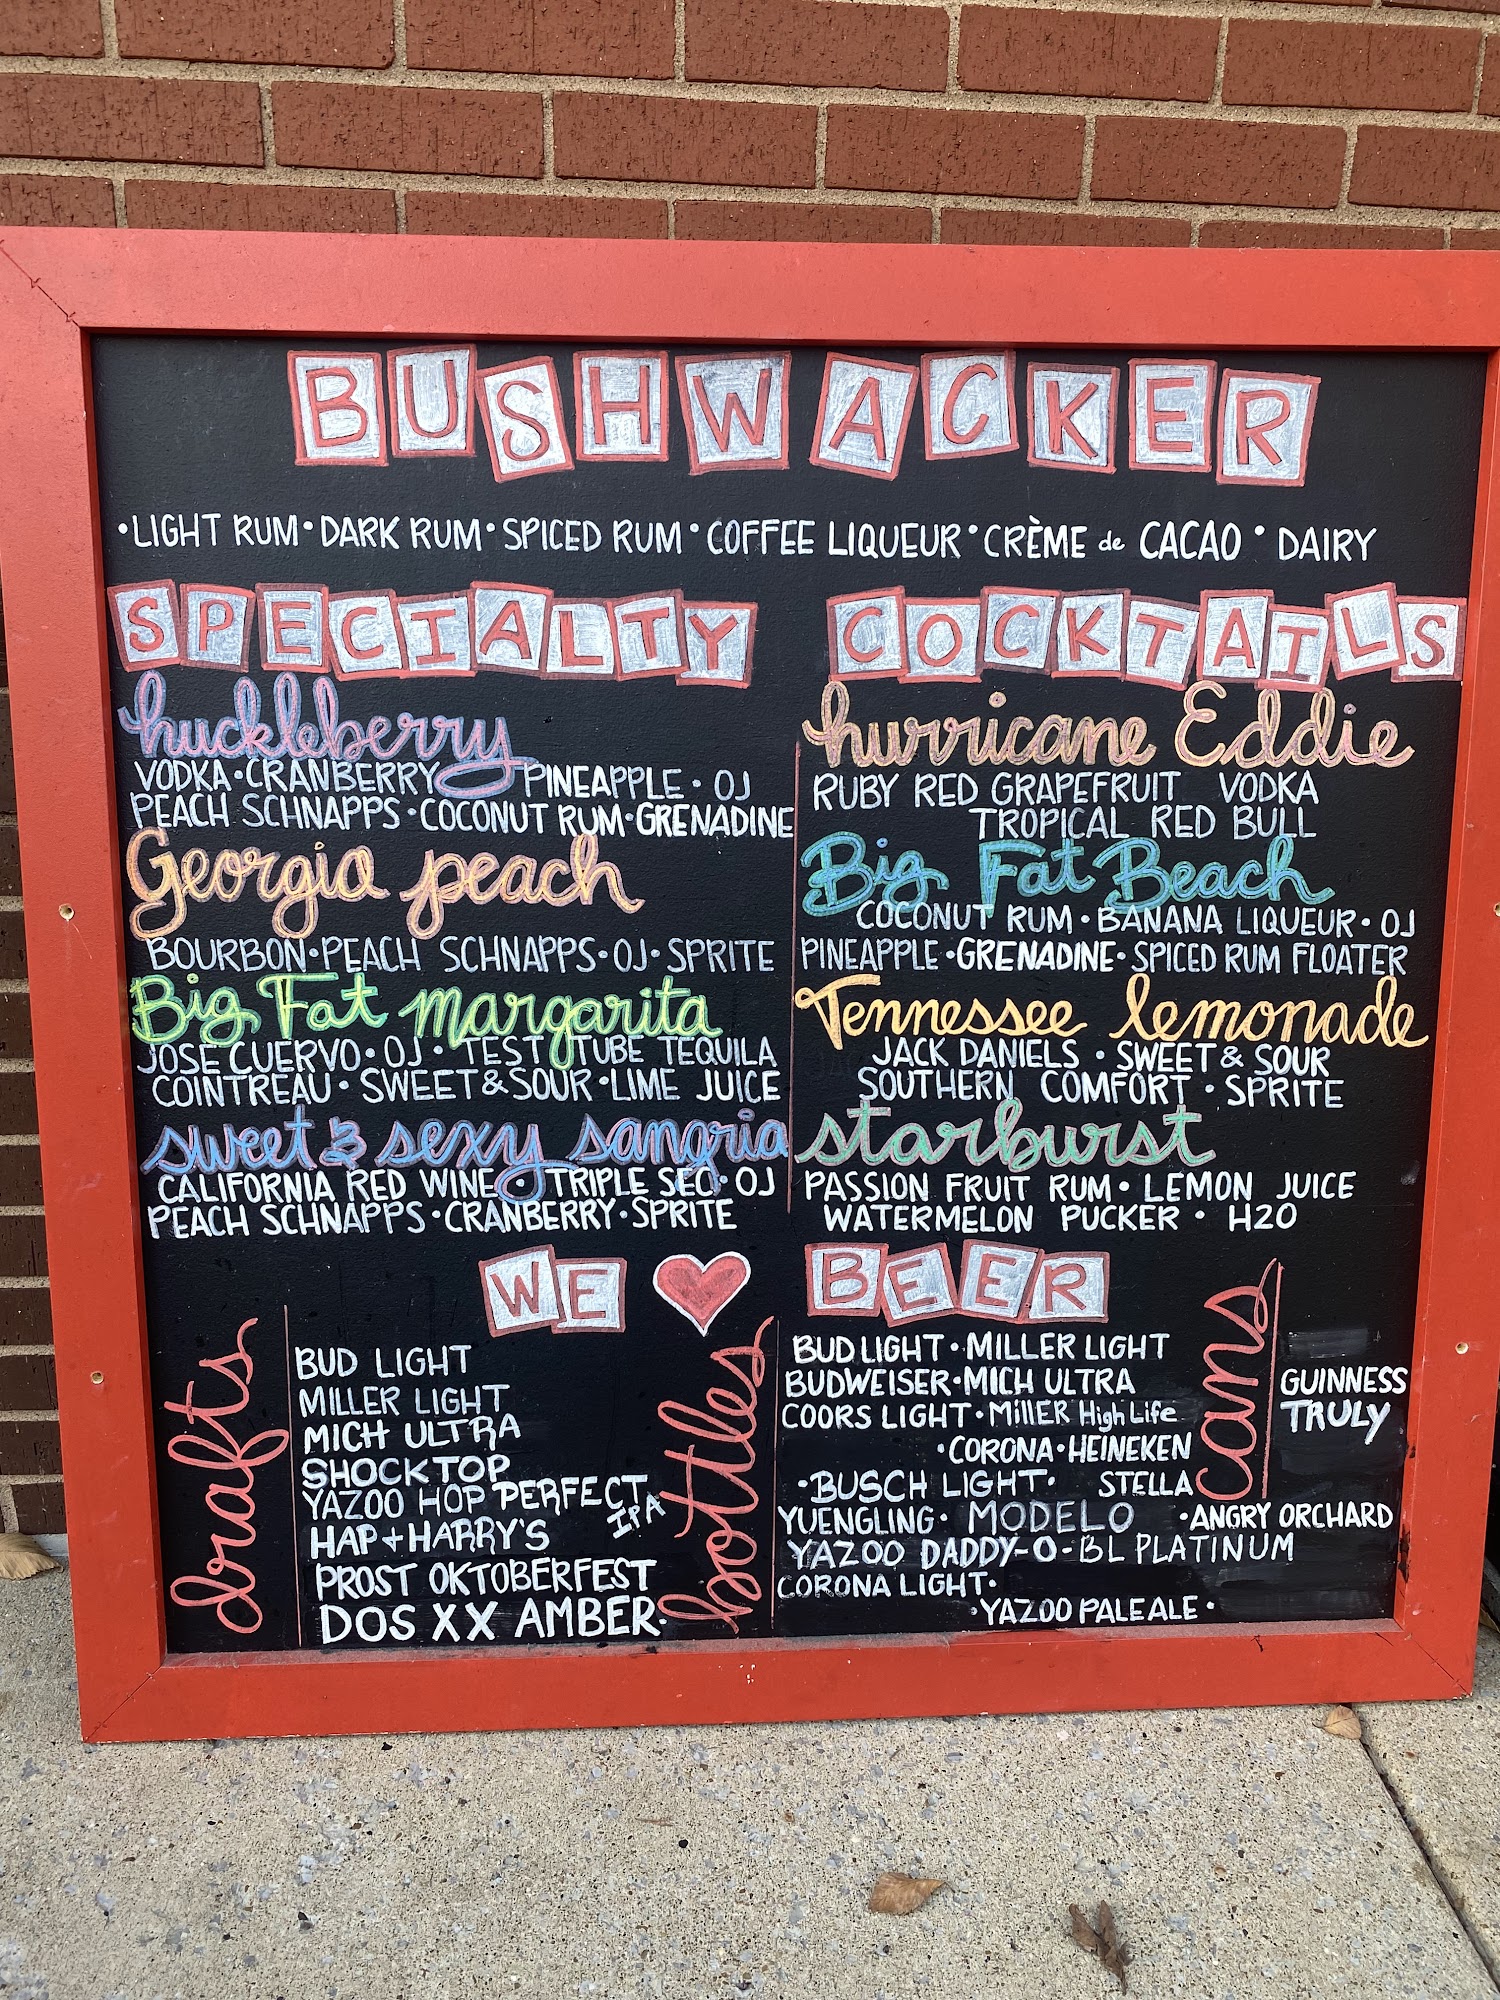 BUSHWACKER
•LIGHT RUM•DARK RUM•SPICED RUM•COFFEE LIQUEUR•CRÈME de CACAO•DAIRY
SPECIALTY COCKTAILS
huckleberry
VODKA•CRANBERRY PINEAPPLE•OJ
PEACH SCHNAPPS•COCONUT RUM•GRENADINE
Georgia peach
BOURBON•PEACH SCHNAPPS•OJ•SPRITE
Big Fat margarita
JOSE CUERVO•OJ•TEST TUBE TEQUILA
COINTREAU•SWEET&SOUR•LIME JUICE
sweet & sexy sangria
CALIFORNIA RED WINE•TRIPLE SEC•OJ
PEACH SCHNAPPS•CRANBERRY•SPRITE
hurricane Eddie
RUBY RED GRAPEFRUIT VODKA
TROPICAL RED BULL
Big Fat Beach
COCONUT RUM•BANANA LIQUEUR•OJ
PINEAPPLE•GRENADINE•SPICED RUM FLOATER
Tennessee lemonade
JACK DANIELS•SWEET & SOUR
SOUTHERN COMFORT•SPRITE
starburst
PASSION FRUIT RUM•LEMON JUICE
WATERMELON PUCKER•H2O
WE ♥ BEER
drafts
BUD LIGHT
MILLER LIGHT
MICH ULTRA
SHOCKTOP
YAZOO HOP PERFECT IPA
HAP+HARRY'S
PROST OKTOBERFEST
DOS XX AMBER•
bottles
BUD LIGHT•MILLER LIGHT
BUDWEISER•MICH ULTRA
COORS LIGHT•MillER High Life
•CORONA•HEINEKEN
•BUSCH LIGHT• STELLA
YUENGLING• MODELO •ANGRY ORCHARD
YAZOO DADDY-O-BL PLATINUM
CORONA LIGHT•
•YAZOO PALE ALE•
cans
GUINNESS
TRULY